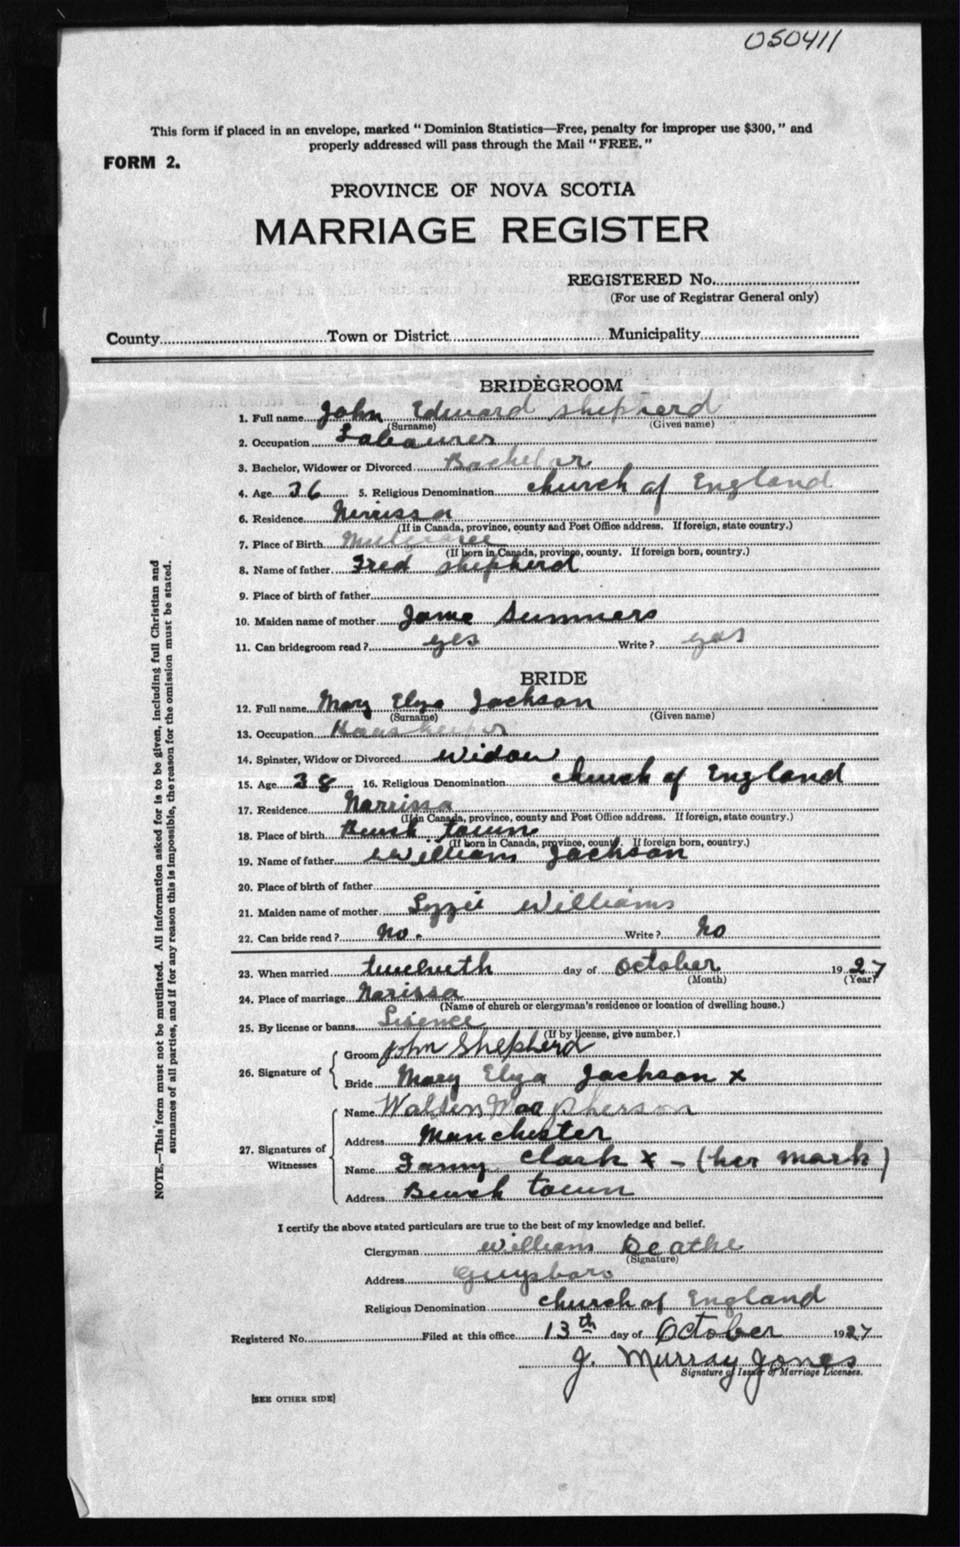 050411
This form if placed in an envelope, marked "Dominion Statistics—Free, penalty for improper use $300," and
properly addressed will pass through the Mail "FREE."
FORM 2.
PROVINCE OF NOVA SCOTIA
MARRIAGE REGISTER
REGISTERED No.
(For use of Registrar General only)
County Town or District Municipality
BRIDEGROOM
1. Full name John Edward Shepherd
(Surname) (Given name)
2. Occupation Labourer
3. Bachelor, Widower or Divorced Bachelor
4. Age 36 5. Religious Denomination church of England
6. Residence Nerissa
(If in Canada, province, county and Post Office address. If foreign, state country.)
7. Place of Birth
(If born in Canada, province, county. If foreign born, country.)
8. Name of father Fred Shepherd
9. Place of birth of father
10. Maiden name of mother Jame Summers
11. Can bridegroom read? yes Write? yas
BRIDE
12. Full name Mary Elza Jackson
(Surname) (Given name)
13. Occupation Housekeeper
14. Spinster, Widow or Divorced Widow
15. Age 38 16. Religious Denomination church of England
17. Residence Narrissa
(If in Canada, province, county and Post Office address. If foreign, state country.)
18. Place of birth Beach town
(If born in Canada, province, county. If foreign born, country.)
19. Name of father William Jackson
20. Place of birth of father
21. Maiden name of mother Lizzie Williams
22. Can bride read? No. Write? No
23. When married twelveth day of October 1927
(Month) (Year)
24. Place of marriage Narissa
(Name of church or clergyman's residence or location of dwelling house.)
25. By license or banns Lisence
(If by license, give number.)
26. Signature of Groom John Shepherd
Bride Mary Elza Jackson x
27. Signatures of Witnesses
Name Walden MacPherson
Address Manchester
Name Fanny Clark x - (her mark)
Address Beach town
I certify the above stated particulars are true to the best of my knowledge and belief.
Clergyman William Deathe
(Signature)
Address Guysboro
Religious Denomination church of England
Registered No. Filed at this office 13th day of October 1927
J. Murray Jones
Signature of Issuer of Marriage Licenses.
[SEE OTHER SIDE]
NOTE.—This form must not be mutilated. All information asked for is to be given, including full Christian and
surnames of all parties, and if for any reason this is impossible, the reason for the omission must be stated.